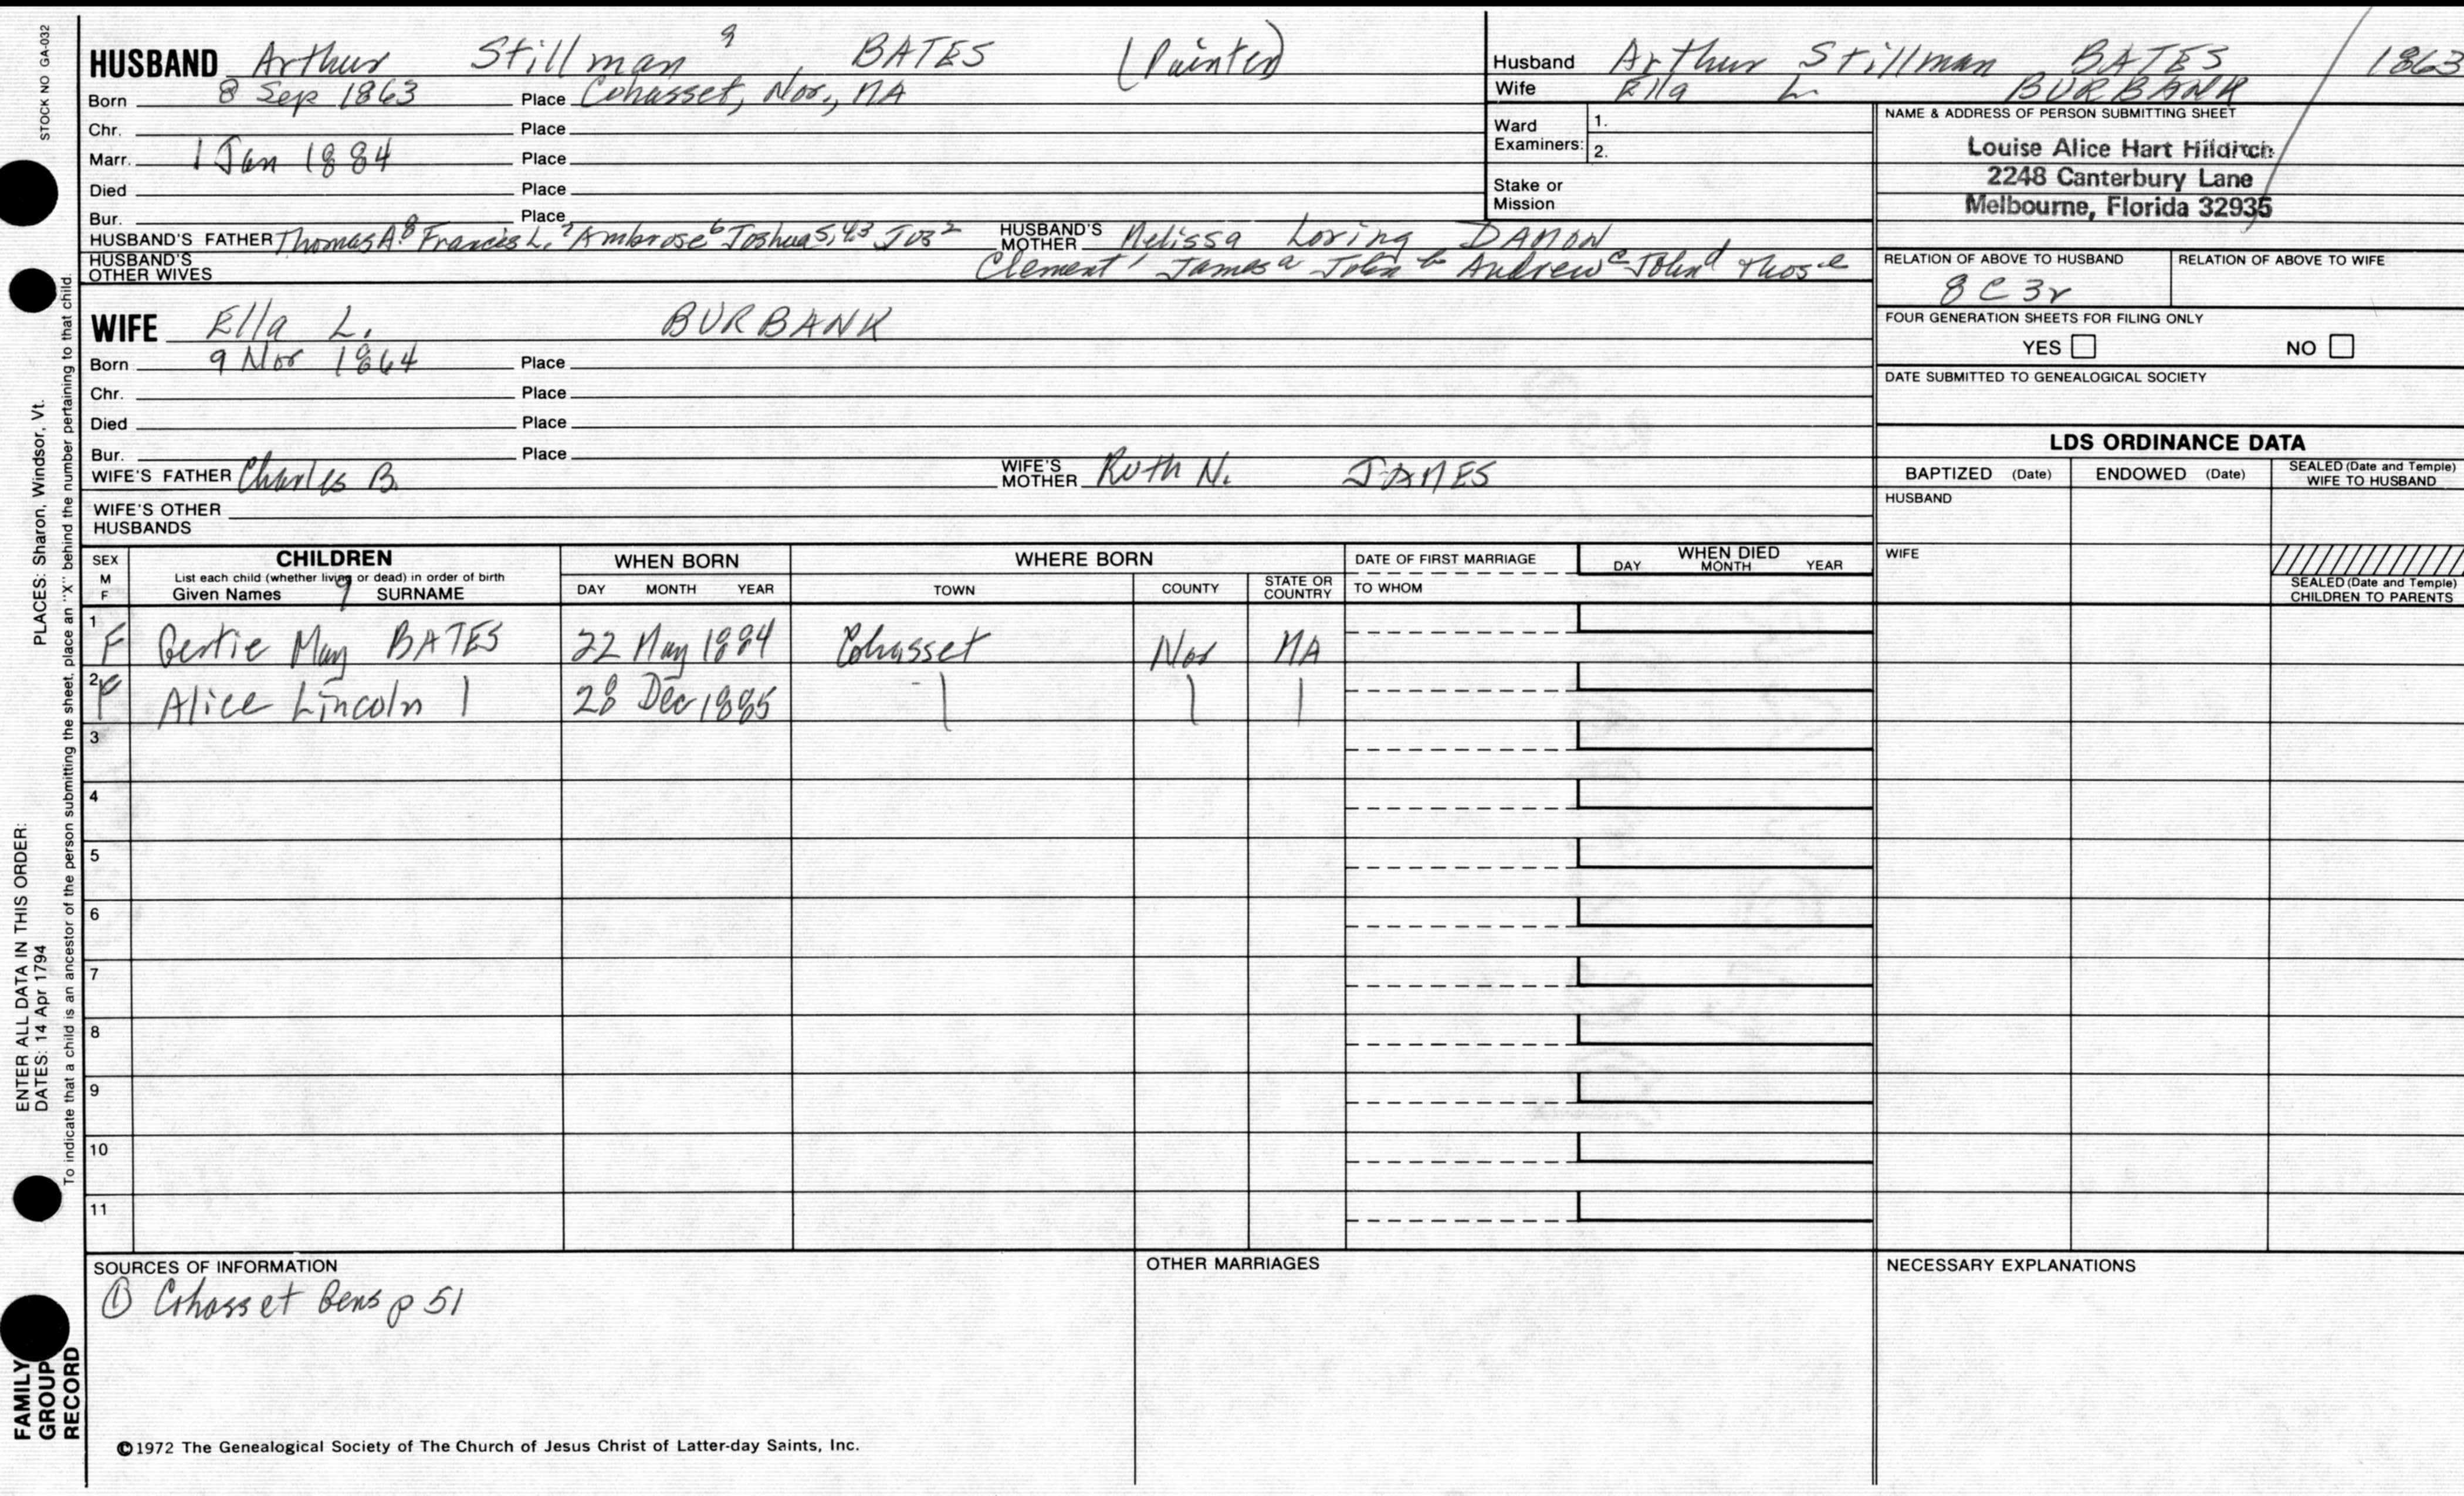 STOCK NO GA-032
HUSBAND Arthur Stillman 9 BATES (Painter)
Born 8 Sep 1863 Place Cohasset, Nor., MA
Chr. Place
Marr. 1 Jan 1884 Place
Died Place
Bur. Place
HUSBAND'S FATHER Thomas A.8 Francis L.7 Ambrose6 Joshua5,4,3 Jos2 HUSBAND'S MOTHER Melissa Loring DAMON
HUSBAND'S OTHER WIVES Clement1 James a John b Andrew c John d Thos e
Husband Arthur Stillman BATES 1863
Wife Ella L. BURBANK
Ward Examiners: 1.
2.
Stake or Mission
NAME & ADDRESS OF PERSON SUBMITTING SHEET
Louise Alice Hart Hilditch
2248 Canterbury Lane
Melbourne, Florida 32935
RELATION OF ABOVE TO HUSBAND RELATION OF ABOVE TO WIFE
8 C 3r
FOUR GENERATION SHEETS FOR FILING ONLY
YES NO
DATE SUBMITTED TO GENEALOGICAL SOCIETY
WIFE Ella L. BURBANK
Born 9 Nov 1864 Place
Chr. Place
Died Place
Bur. Place
WIFE'S FATHER Charles B. WIFE'S MOTHER Ruth N. JAMES
WIFE'S OTHER HUSBANDS
LDS ORDINANCE DATA
BAPTIZED (Date) ENDOWED (Date) SEALED (Date and Temple) WIFE TO HUSBAND
HUSBAND
WIFE
SEALED (Date and Temple) CHILDREN TO PARENTS
SEX M F
CHILDREN
List each child (whether living or dead) in order of birth
Given Names 9 SURNAME
WHEN BORN
DAY MONTH YEAR
WHERE BORN
TOWN COUNTY STATE OR COUNTRY
DATE OF FIRST MARRIAGE
TO WHOM
WHEN DIED
DAY MONTH YEAR
1 F Gertie May BATES 22 May 1884 Cohasset Nor MA
2 F Alice Lincoln | 28 Dec 1885 | | |
3
4
5
6
7
8
9
10
11
SOURCES OF INFORMATION
① Cohasset Gens p 51
OTHER MARRIAGES
NECESSARY EXPLANATIONS
©1972 The Genealogical Society of The Church of Jesus Christ of Latter-day Saints, Inc.
ENTER ALL DATA IN THIS ORDER:
DATES: 14 Apr 1794 PLACES: Sharon, Windsor, Vt.
To indicate that a child is an ancestor of the person submitting the sheet, place an "X" behind the number pertaining to that child.
FAMILY
GROUP
RECORD